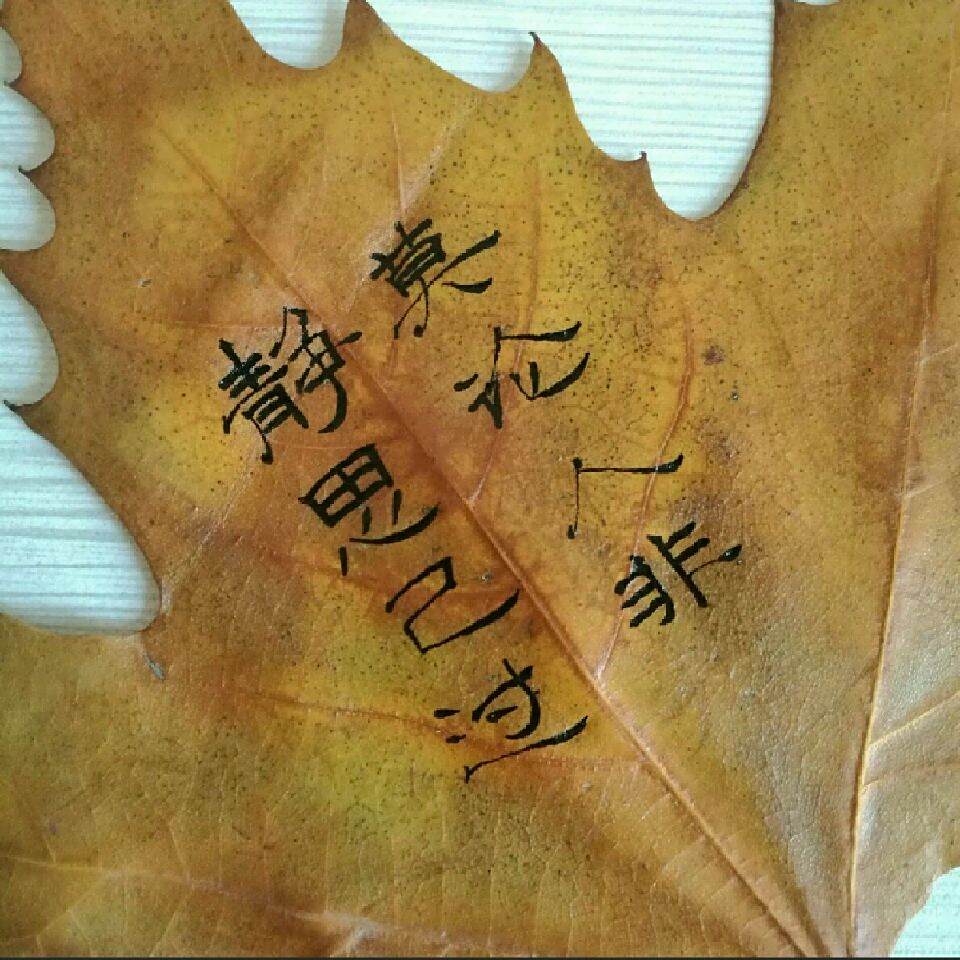 静思己过
莫论人非